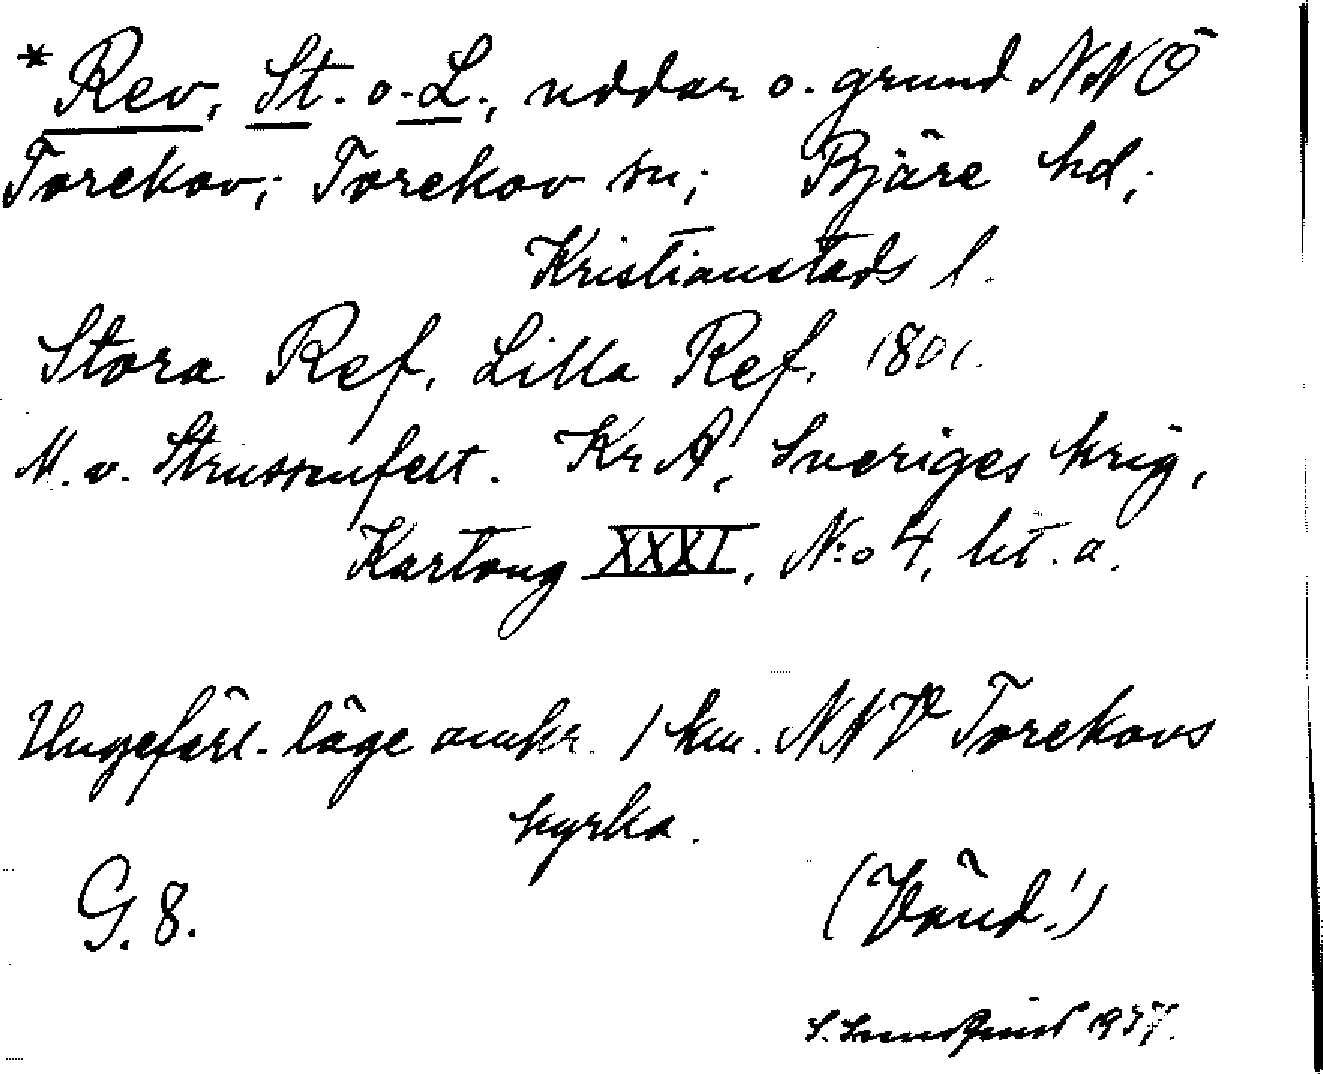 * Rev, St. o. L., uddar o. grund NNÖ
Torekov; Torekov sn; Bjäre hd;
Kristianstads l.
Stora Ref, Lilla Ref. 1801.
M. v. Strussenfelt. Kr A, Sveriges krig,
Kartong XXXI, N:o 4, lit. a.
Ungefärl. läge omkr. 1 km. NNV Torekovs
kyrka.
G. 8.
(Vänd!)
S. Sundqvist 1937.